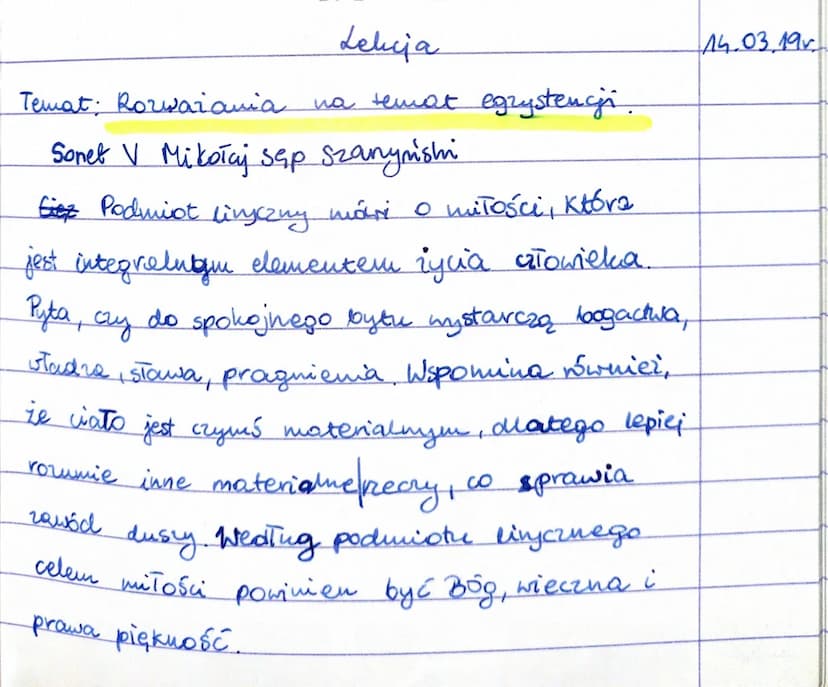 Lekcja
14.03.19r.
Temat: Rozważania na temat egzystencji.
Sonet V Mikołaj Sęp Szarzyński
Podmiot liryczny mówi o miłości, która
jest integralnym elementem życia człowieka.
Pyta, czy do spokojnego bytu wystarczą bogactwa,
władza, sława, pragnienia. Wspomina również,
że ciało jest czymś materialnym, dlatego lepiej
rozumie inne materialne rzeczy, co sprawia
zawód duszy. Według podmiotu lirycznego
celem miłości powinien być Bóg, wieczna i
prawa piękność.